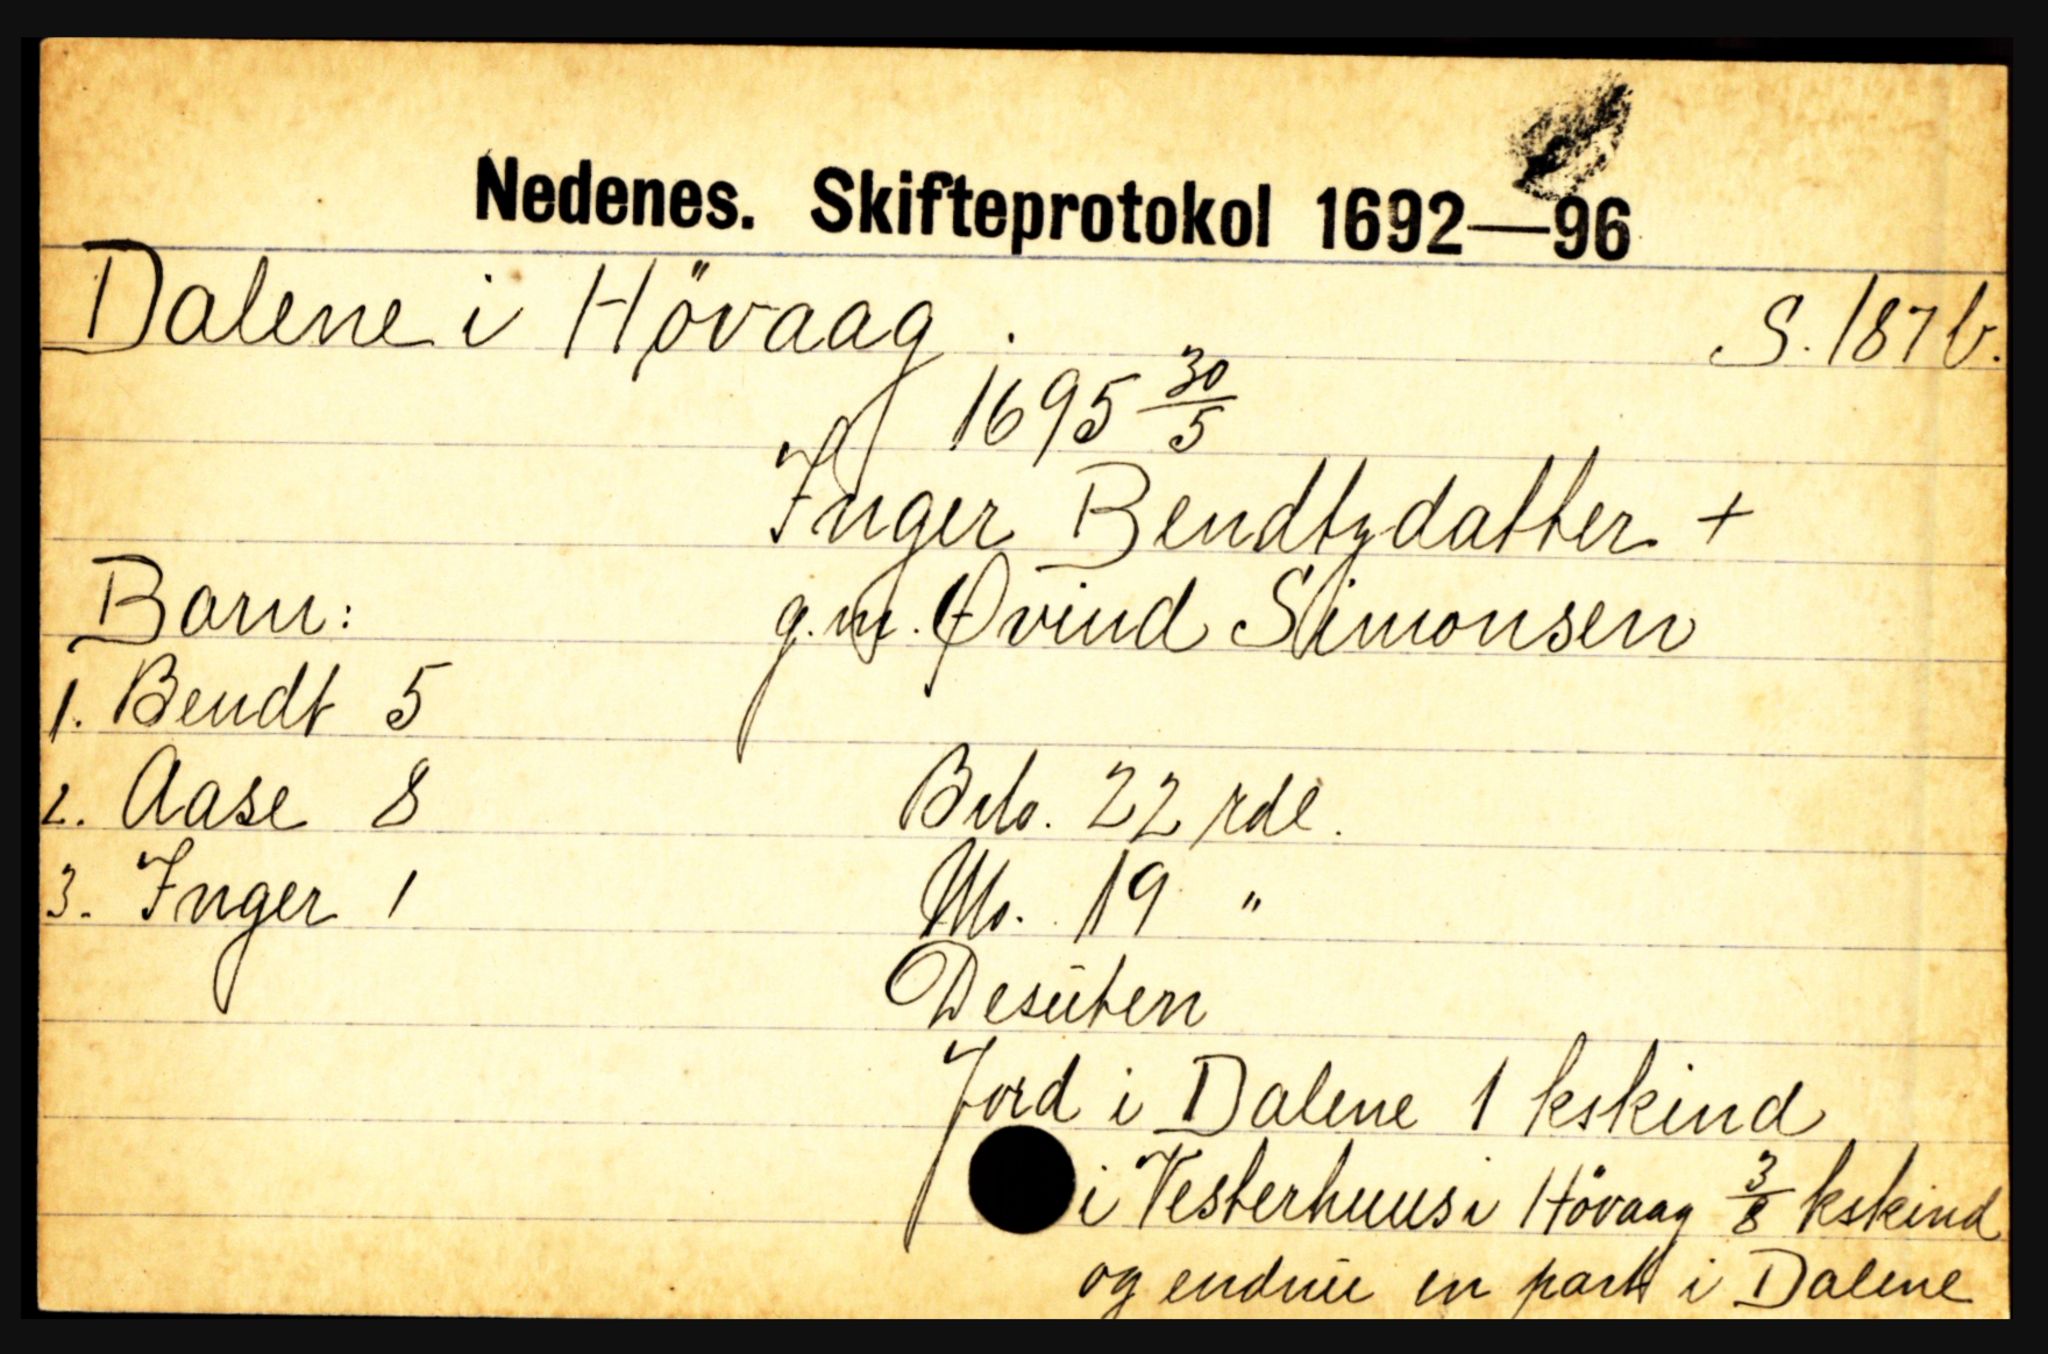 Nedenes. Skifteprotokol 1692—96
Dalene i Hövaag. S. 187 b.
1695 30/5
Inger Bendtzdatter +
Barn: g.m. Øvind Simonsen
1. Bendt 5
2. Aase 8 Bto. 22 rdl.
3. Inger 1 No. 19 "
Desuten
Jord i Dalene 1 kskind
i Vesterhuus i Hövaag 3/8 kskind
og endnu en part i Dalene